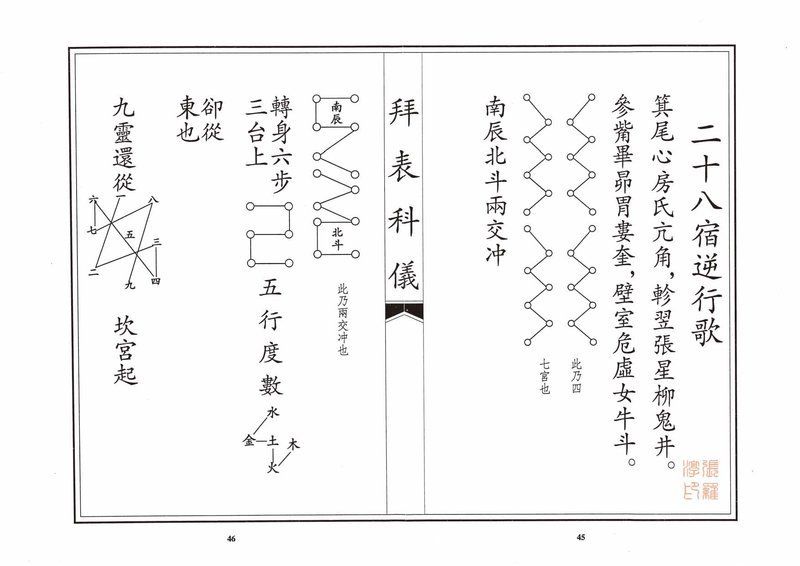 二十八宿逆行歌
箕尾心房氐亢角，軫翌張星柳鬼井。
參觜畢昴胃婁奎，壁室危虛女牛斗。
此乃四
七宮也
南辰北斗兩交冲
張羅
淳印
45
拜表科儀
南辰
北斗
此乃兩交冲也
轉身六步
三台上
五行度數
水
金
土
木
火
卻從
東也
九靈還從
一
八
六
七
五
三
二
四
九
坎宮起
46